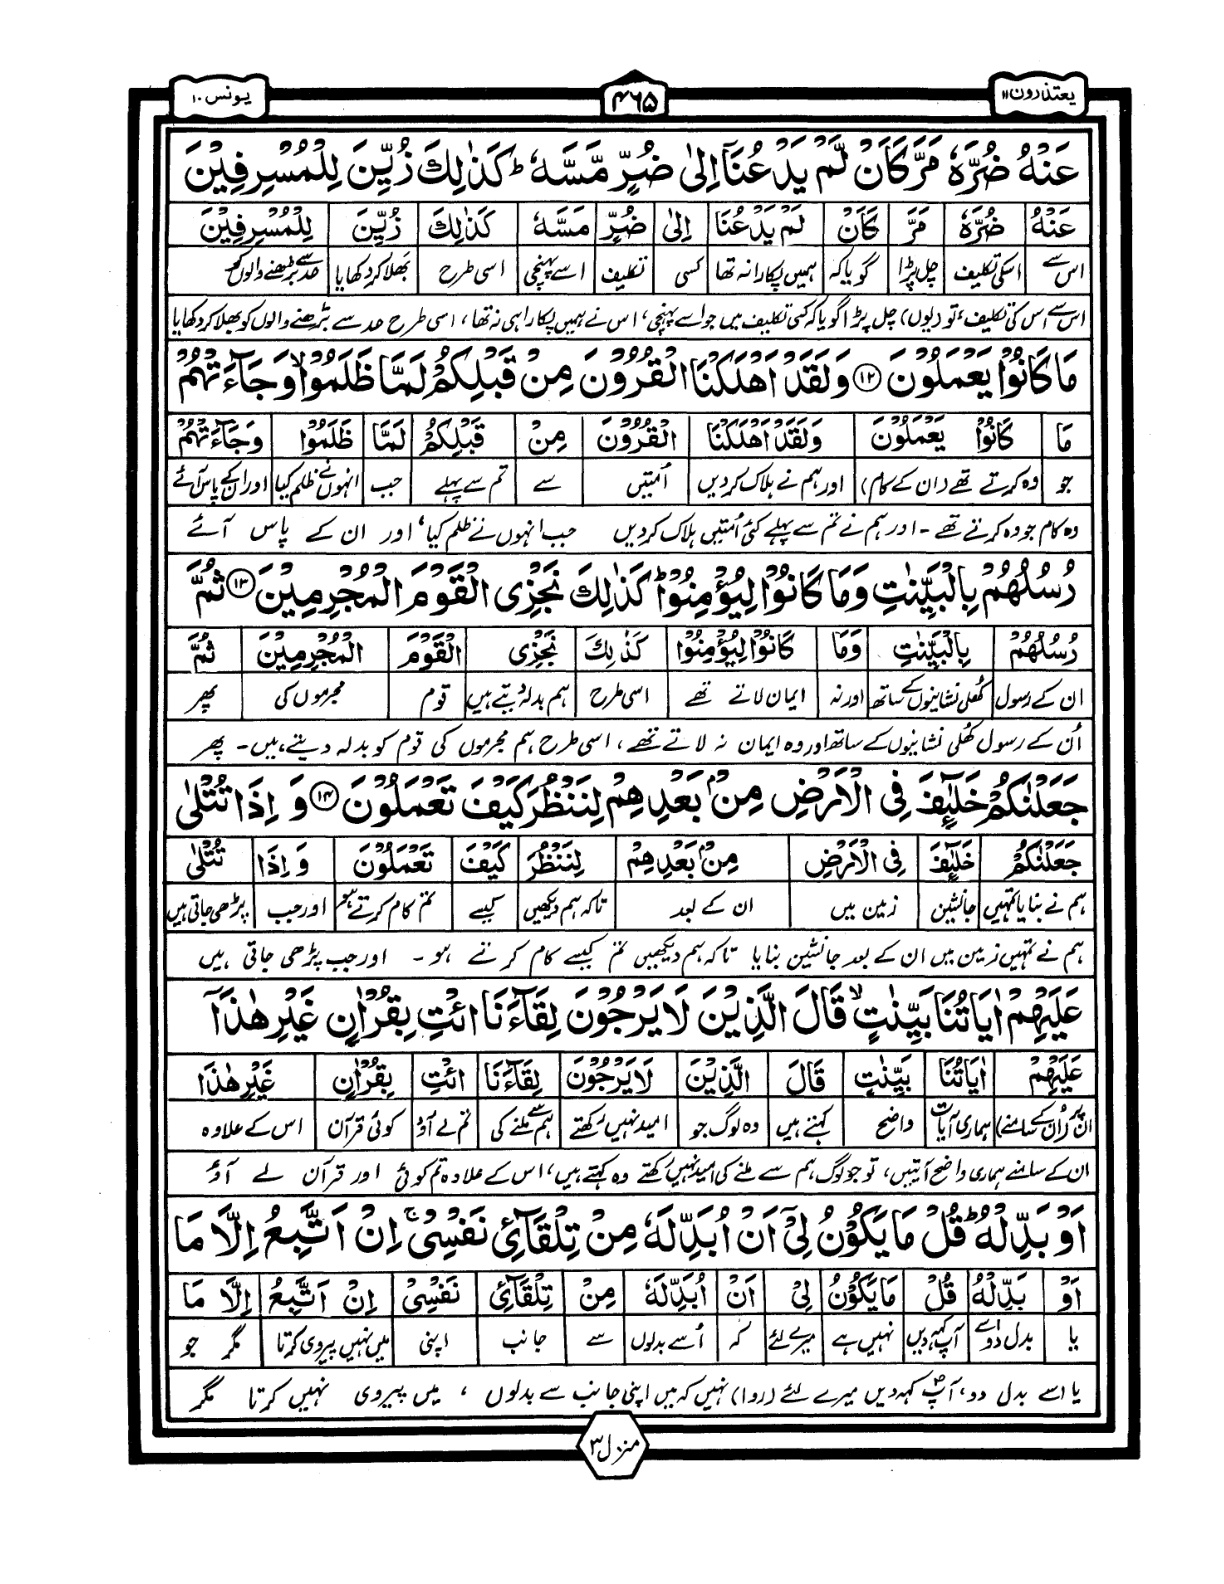 یعتذرون ۱۱
۴۶۵
یونس ۱۰
عَنْهُ ضُرَّهٗ مَرَّ كَاَنْ لَّمْ يَدْعُنَاۤ اِلٰى ضُرٍّ مَّسَّهٗ ؕ كَذٰلِكَ زُيِّنَ لِلْمُسْرِفِيْنَ
عَنْهُ ضُرَّهٗ مَرَّ كَاَنْ لَمْ يَدْعُنَا اِلٰى ضُرٍّ مَسَّهٗ كَذٰلِكَ زُيِّنَ لِلْمُسْرِفِيْنَ
اس سے اسکی تکلیف چل پڑا گویا کہ ہمیں پکارا نہ تھا کسی تکلیف اسے پہنچی اسی طرح بھلا کر دکھایا حد سے بڑھنے والوں کو
اس سے اس کی تکلیف، تو (یوں) چل پڑا گویا کہ کسی تکلیف میں جو اسے پہنچی، اس نے ہمیں پکارا ہی نہ تھا، اسی طرح حد سے بڑھنے والوں کو بھلا کر دکھایا
مَا كَانُوْا يَعْمَلُوْنَ ۝۱۲ وَلَقَدْ اَهْلَكْنَا الْقُرُوْنَ مِنْ قَبْلِكُمْ لَمَّا ظَلَمُوْا ۙ وَجَآءَتْهُمْ
مَا كَانُوْا يَعْمَلُوْنَ وَلَقَدْ اَهْلَكْنَا الْقُرُوْنَ مِنْ قَبْلِكُمْ لَمَّا ظَلَمُوْا وَجَآءَتْهُمْ
جو وہ کرتے تھے (ان کے کام) اور ہم نے ہلاک کردیں اُمتیں سے تم سے پہلے جب انہوں نے ظلم کیا اور ان کے پاس آئے
وہ کام جو وہ کرتے تھے ۔ اور ہم نے تم سے پہلے کئی اُمتیں ہلاک کردیں جب انہوں نے ظلم کیا، اور ان کے پاس آئے
رُسُلُهُمْ بِالْبَيِّنٰتِ وَمَا كَانُوْا لِيُؤْمِنُوْا ؕ كَذٰلِكَ نَجْزِى الْقَوْمَ الْمُجْرِمِيْنَ ۝۱۳ ثُمَّ
رُسُلُهُمْ بِالْبَيِّنٰتِ وَمَا كَانُوْا لِيُؤْمِنُوْا كَذٰلِكَ نَجْزِى الْقَوْمَ الْمُجْرِمِيْنَ ثُمَّ
ان کے رسول کھلی نشانیوں کے ساتھ اور نہ ایمان لاتے تھے اسی طرح ہم بدلہ دیتے ہیں قوم مجرموں کی پھر
اُن کے رسول کھلی نشانیوں کے ساتھ اور وہ ایمان نہ لاتے تھے، اسی طرح ہم مجرموں کی قوم کو بدلہ دیتے ہیں ۔ پھر
جَعَلْنٰكُمْ خَلٰٓئِفَ فِى الْاَرْضِ مِنْۢ بَعْدِهِمْ لِنَنْظُرَ كَيْفَ تَعْمَلُوْنَ ۝۱۴ وَ اِذَا تُتْلٰى
جَعَلْنٰكُمْ خَلٰٓئِفَ فِى الْاَرْضِ مِنْۢ بَعْدِهِمْ لِنَنْظُرَ كَيْفَ تَعْمَلُوْنَ وَ اِذَا تُتْلٰى
ہم نے بنایا تمہیں جانشین زمین میں ان کے بعد تاکہ ہم دیکھیں کیسے تم کام کرتے ہو اور جب پڑھی جاتی ہیں
ہم نے تمہیں زمین میں ان کے بعد جانشین بنایا تاکہ ہم دیکھیں تم کیسے کام کرتے ہو ۔ اور جب پڑھی جاتی ہیں
عَلَيْهِمْ اٰيَاتُنَا بَيِّنٰتٍ ۙ قَالَ الَّذِيْنَ لَا يَرْجُوْنَ لِقَآءَنَا ائْتِ بِقُرْاٰنٍ غَيْرِ هٰذَاۤ
عَلَيْهِمْ اٰيَاتُنَا بَيِّنٰتٍ قَالَ الَّذِيْنَ لَا يَرْجُوْنَ لِقَآءَنَا ائْتِ بِقُرْاٰنٍ غَيْرِ هٰذَا
ان پر (ان کے سامنے) ہماری آیات واضح کہتے ہیں وہ لوگ جو امید نہیں رکھتے ہم سے ملنے کی تم لے آؤ کوئی قرآن اس کے علاوہ
ان کے سامنے ہماری واضح آیتیں، تو جو لوگ ہم سے ملنے کی امید نہیں رکھتے وہ کہتے ہیں، اس کے علاوہ تم کوئی اور قرآن لے آؤ
اَوْ بَدِّلْهُ ؕ قُلْ مَا يَكُوْنُ لِىْۤ اَنْ اُبَدِّلَهٗ مِنْ تِلْقَآئِ نَفْسِىْ ۚ اِنْ اَتَّبِعُ اِلَّا مَا
اَوْ بَدِّلْهُ قُلْ مَا يَكُوْنُ لِىْ اَنْ اُبَدِّلَهٗ مِنْ تِلْقَآئِ نَفْسِىْ اِنْ اَتَّبِعُ اِلَّا مَا
یا بدل دو اسے آپ کہہ دیں نہیں ہے میرے لئے کہ اُسے بدلوں سے جانب اپنی میں نہیں پیروی کرتا مگر جو
یا اسے بدل دو، آپؐ کہہ دیں میرے لئے (روا) نہیں کہ میں اپنی جانب سے بدلوں ، میں پیروی نہیں کرتا مگر
منزل ۳